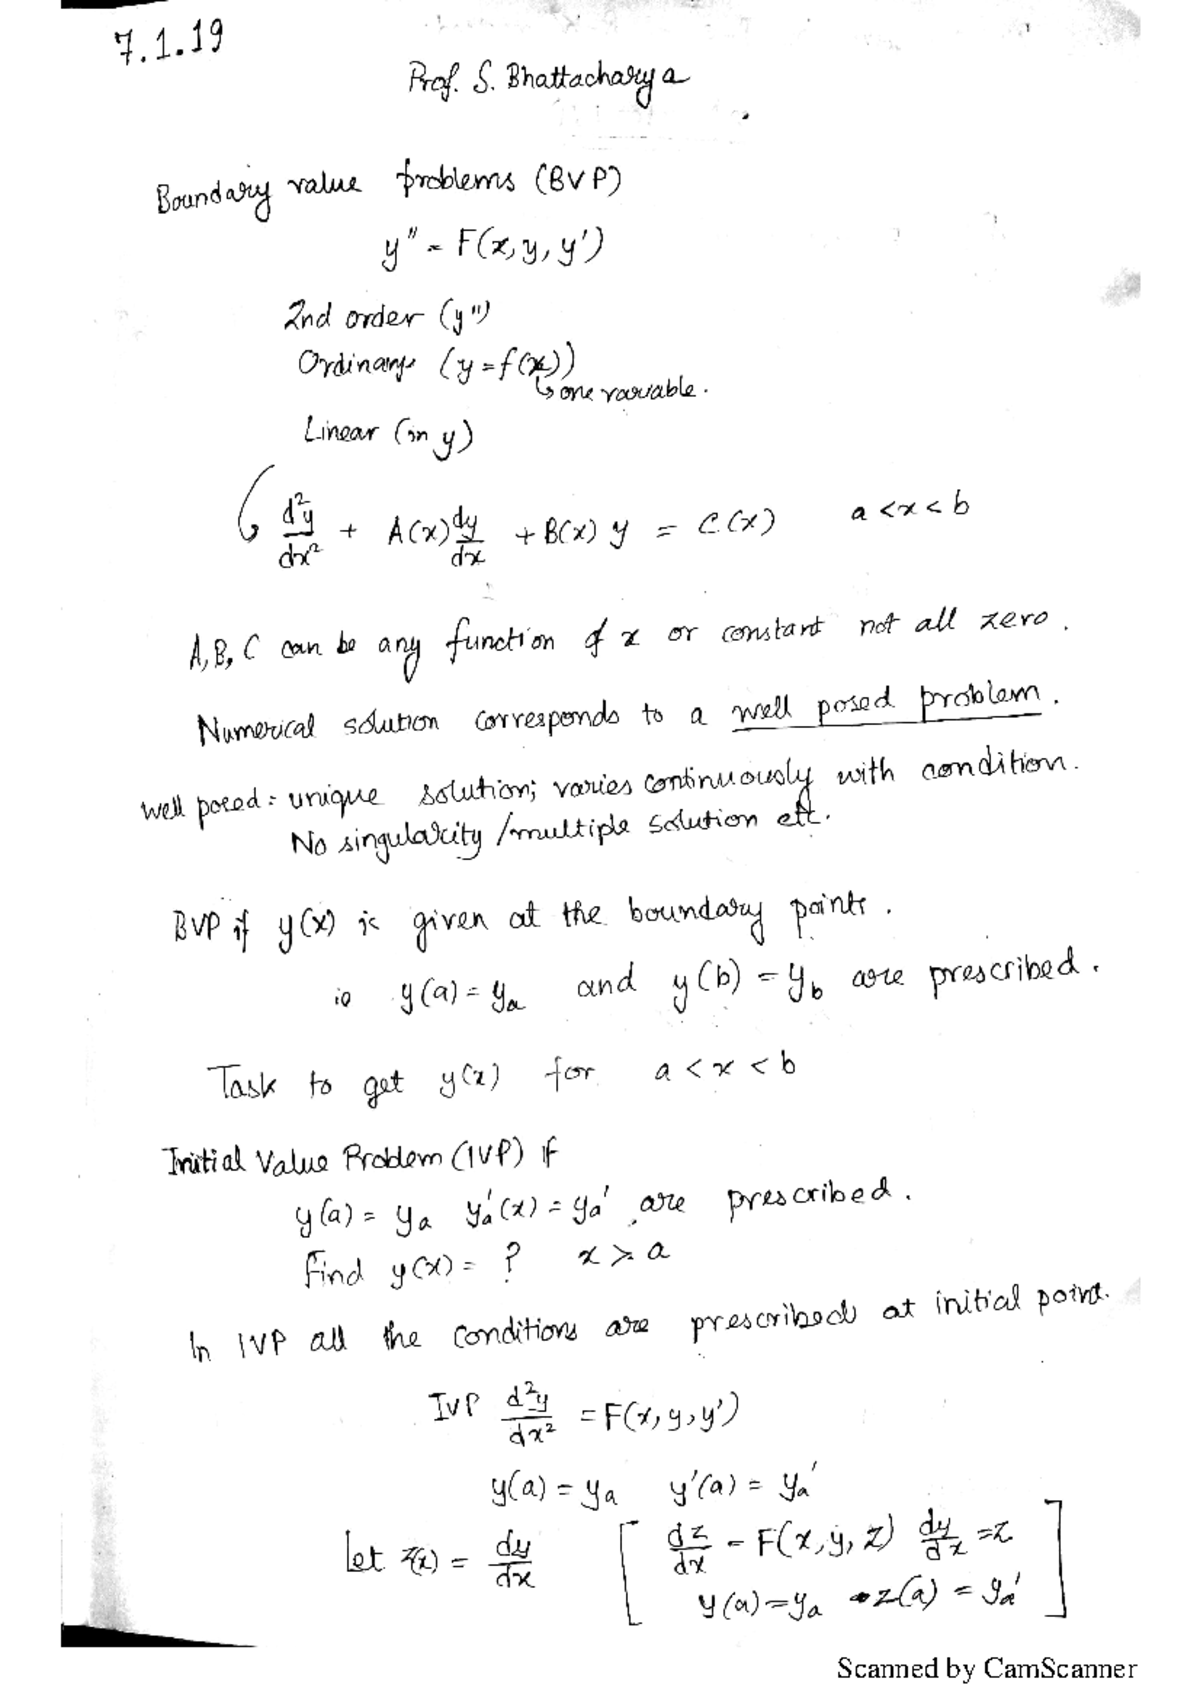 7.1.19
Prof. S. Bhattacharya
Boundary value problems (BVP)
y" = F(x, y, y')
2nd order (y")
Ordinary (y = f(x))
↳ one variable.
Linear (in y)
d²y/dx² + A(x) dy/dx + B(x) y = C(x) a < x < b
A, B, C can be any function of x or constant not all zero.
Numerical solution corresponds to a well posed problem.
well posed = unique solution; varies continuously with condition.
No singularity / multiple solution etc.
BVP if y(x) is given at the boundary points.
ie y(a) = ya and y(b) = yb are prescribed.
Task to get y(x) for a < x < b
Initial Value Problem (IVP) if
y(a) = ya ya'(x) = ya' are prescribed.
Find y(x) = ? x > a
In IVP all the conditions are prescribed at initial point.
IVP d²y/dx² = F(x, y, y')
y(a) = ya y'(a) = ya'
Let z(x) = dy/dx [ dz/dx = F(x, y, z) dy/dx = z
y(a) = ya z(a) = ya' ]
Scanned by CamScanner